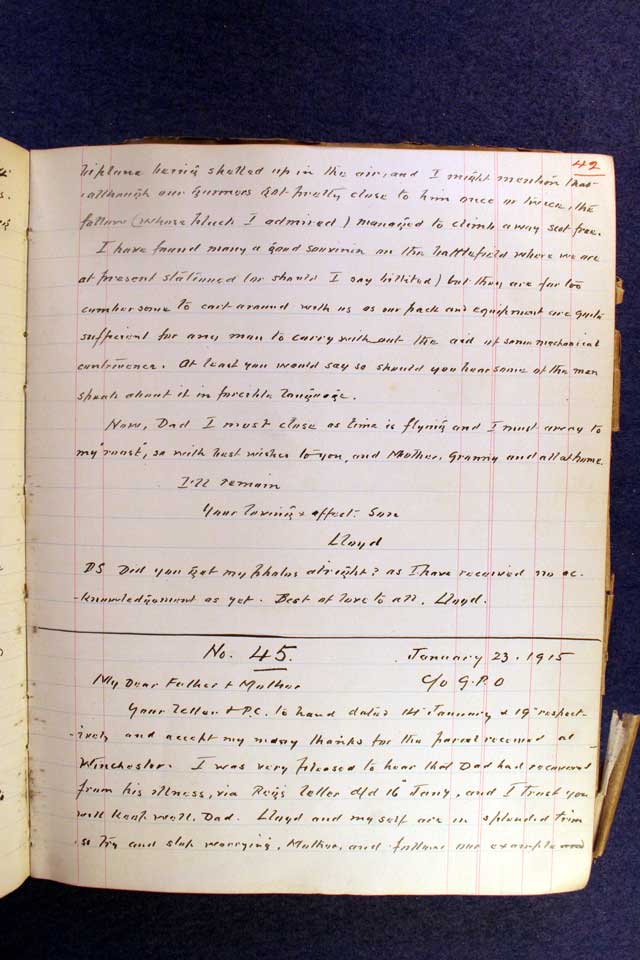 42
biplane being shelled up in the air, and I might mention that
although our gunners got pretty close to him once or twice, the
fellow (whose pluck I admired) managed to climb away scot free.
I have found many a good souvenir on the battlefield where we are
at present stationed (or should I say billited) but they are far too
cumbersome to cart around with us as our pack and equipment are quite
sufficient for any man to carry without the aid of some mechanical
contrivance. At least you would say so should you hear some of the men
speak about it in forcible language.
Now, Dad I must close as time is flying and I must away to
my "roost", so with best wishes to you, and Mother, Granny and all at home.
I'll remain
Your loving & affect. Son
Lloyd
PS Did you get my photos alright? as I have received no ac-
-knowledgement as yet. Best of love to all, Lloyd.
No. 45. January 23. 1915
My Dear Father & Mother C/o G.P.O
Your letter & P.C. to hand dated 14 January & 19 respect-
-ively and accept my many thanks for the parcel received at
Winchester. I was very pleased to hear that Dad had recovered
from his illness, via Reg's letter d/d 16 Jany, and I trust you
will keep well, Dad. Lloyd and myself are in splendid trim
so try and stop worrying, Mother, and follow our example and